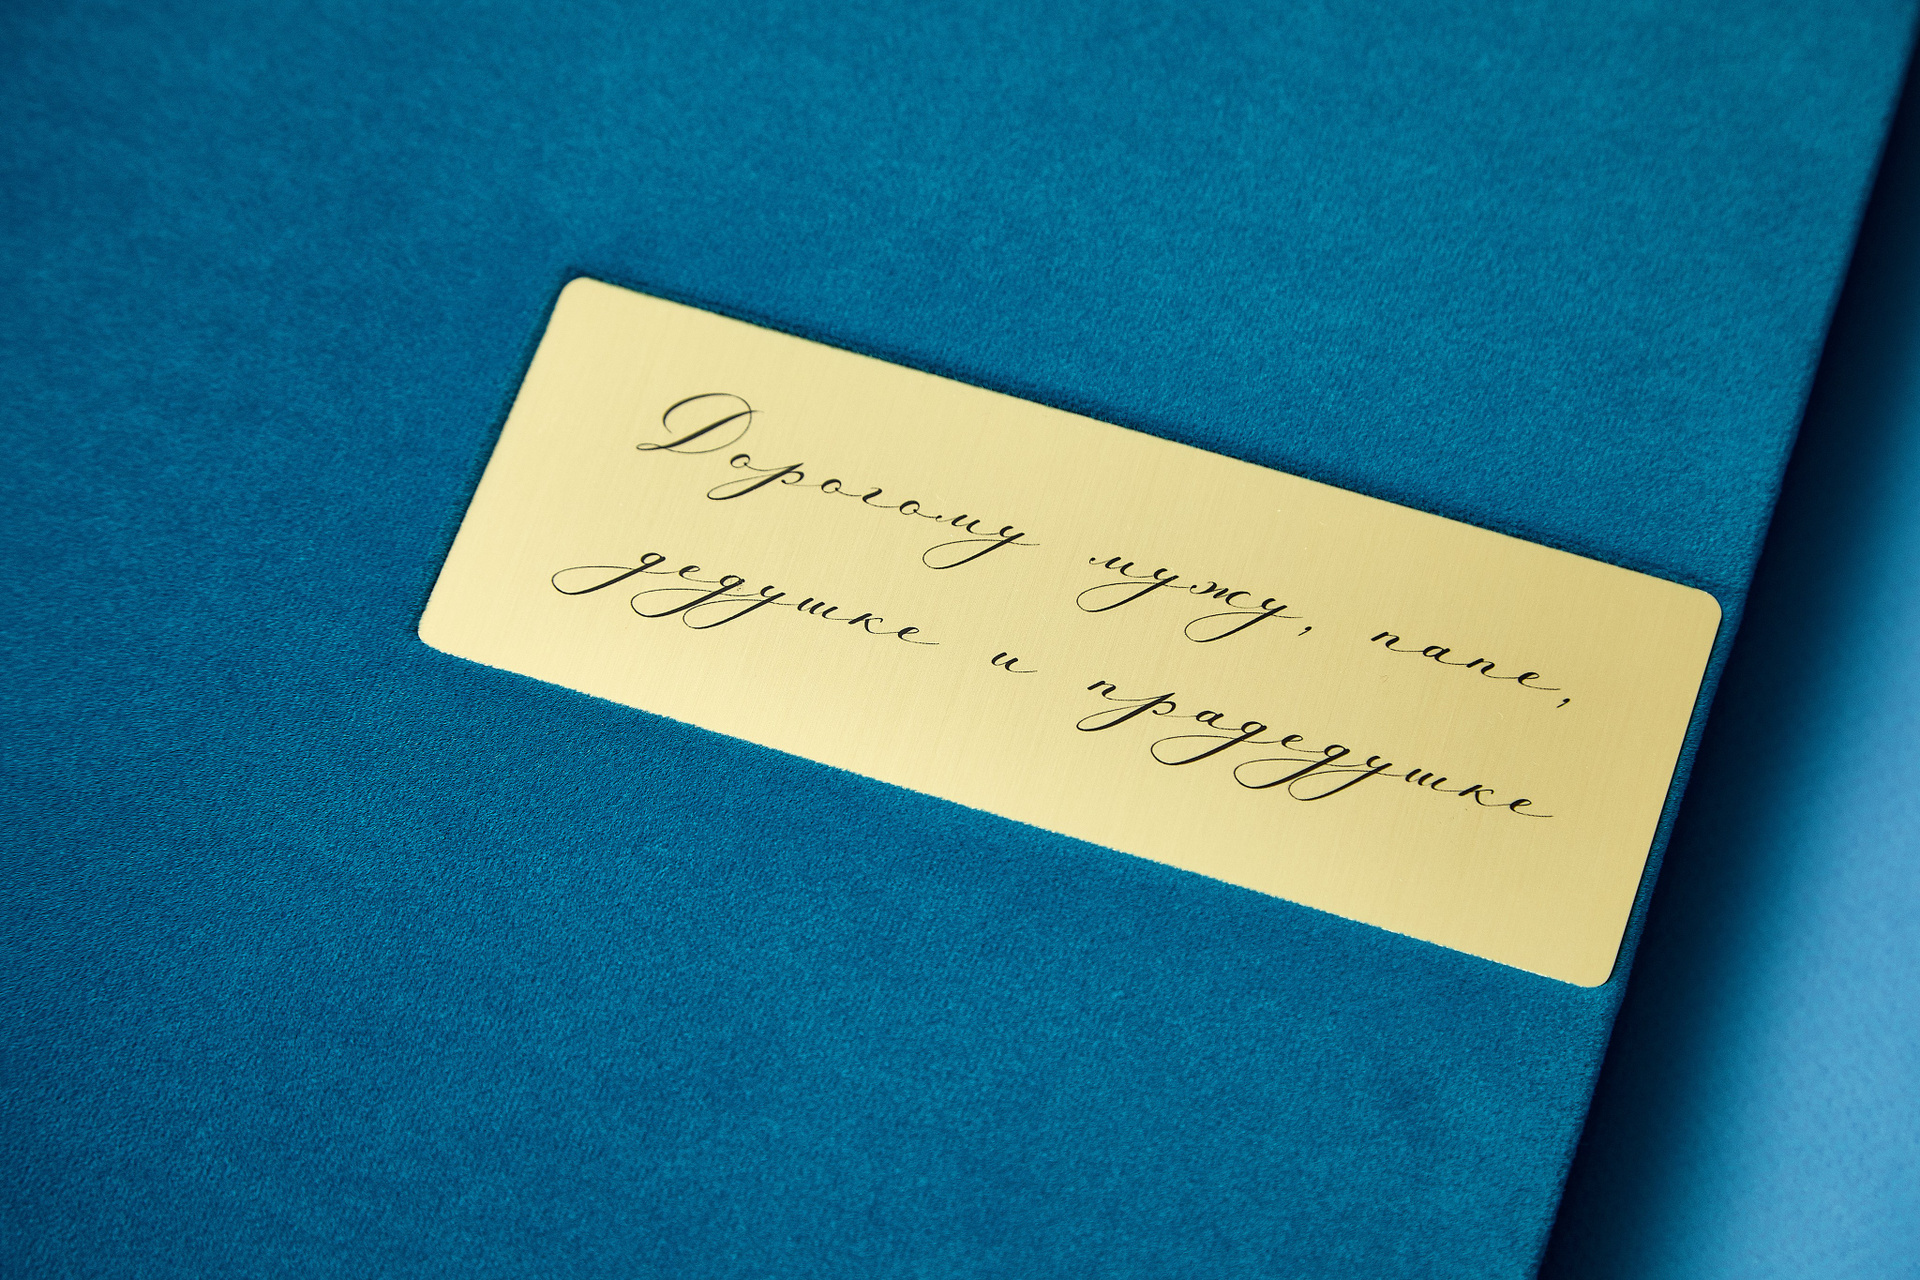 Дорогому мужу, папе,
дедушке и прадедушке